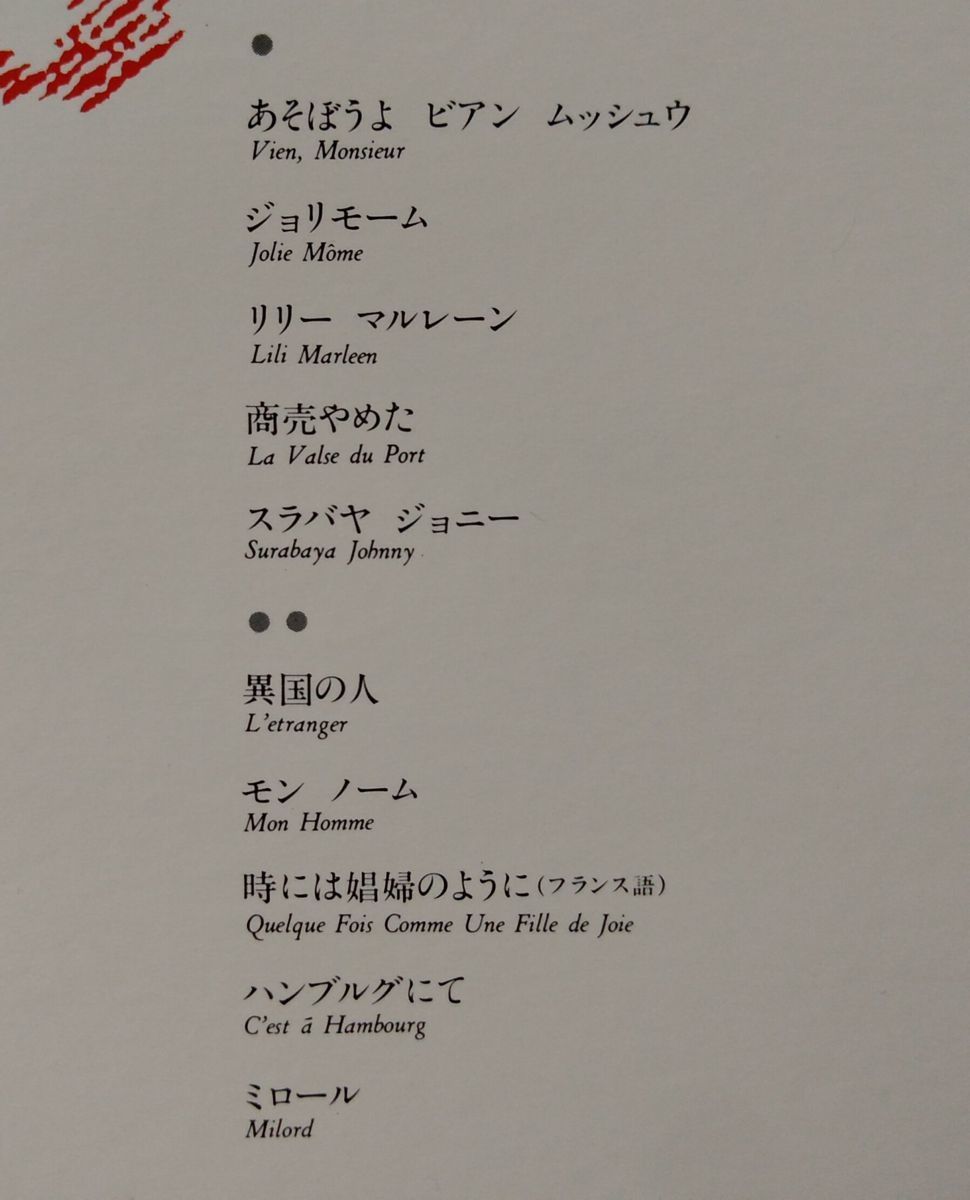 ●
あそぼうよ ビアン ムッシュウ
Vien, Monsieur
ジョリモーム
Jolie Môme
リリー マルレーン
Lili Marleen
商売やめた
La Valse du Port
スラバヤ ジョニー
Surabaya Johnny
●●
異国の人
L'etranger
モン ノーム
Mon Homme
時には娼婦のように(フランス語)
Quelque Fois Comme Une Fille de Joie
ハンブルグにて
C'est ā Hambourg
ミロール
Milord